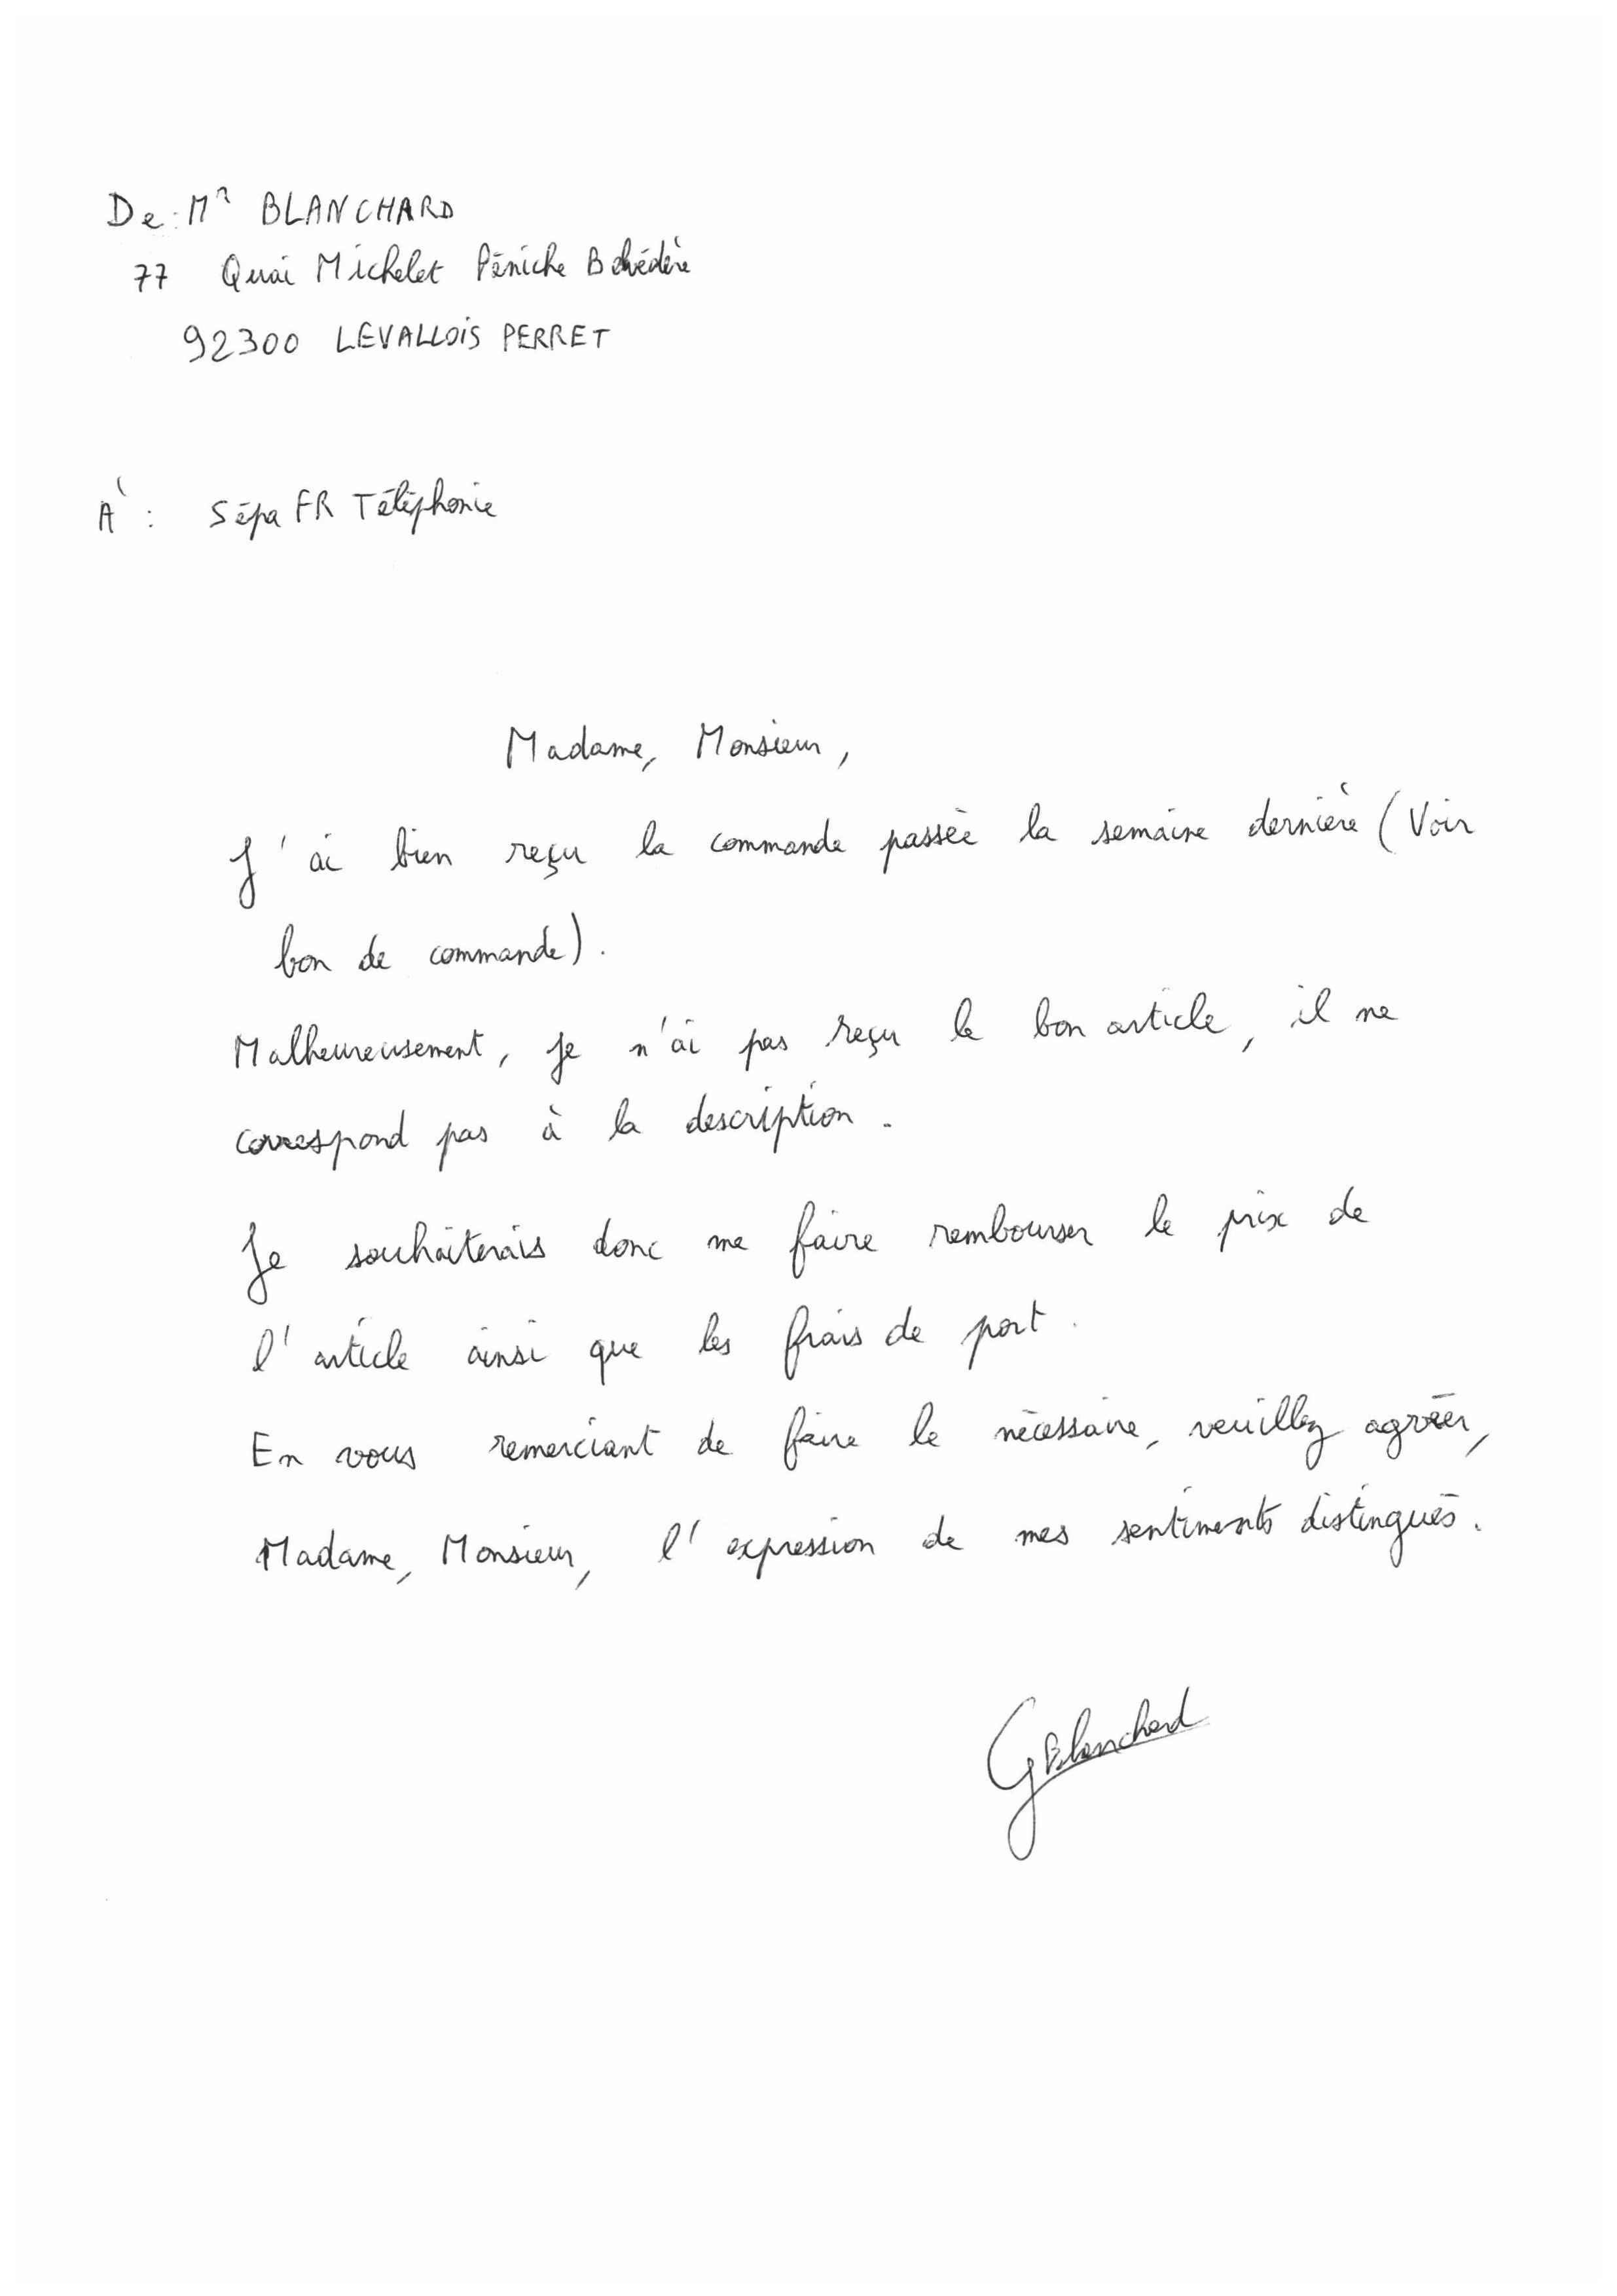 De : Mr BLANCHARD
77 Quai Michelet Péniche Belvédère
92300 LEVALLOIS PERRET
À : Sépa FR Téléphonie
Madame, Monsieur,
J'ai bien reçu la commande passée la semaine dernière (Voir
bon de commande).
Malheureusement, je n'ai pas reçu le bon article, il ne
correspond pas à la description.
Je souhaiterais donc me faire rembourser le prix de
l'article ainsi que les frais de port.
En vous remerciant de faire le nécessaire, veuillez agréer,
Madame, Monsieur, l'expression de mes sentiments distingués.
GBlanchard